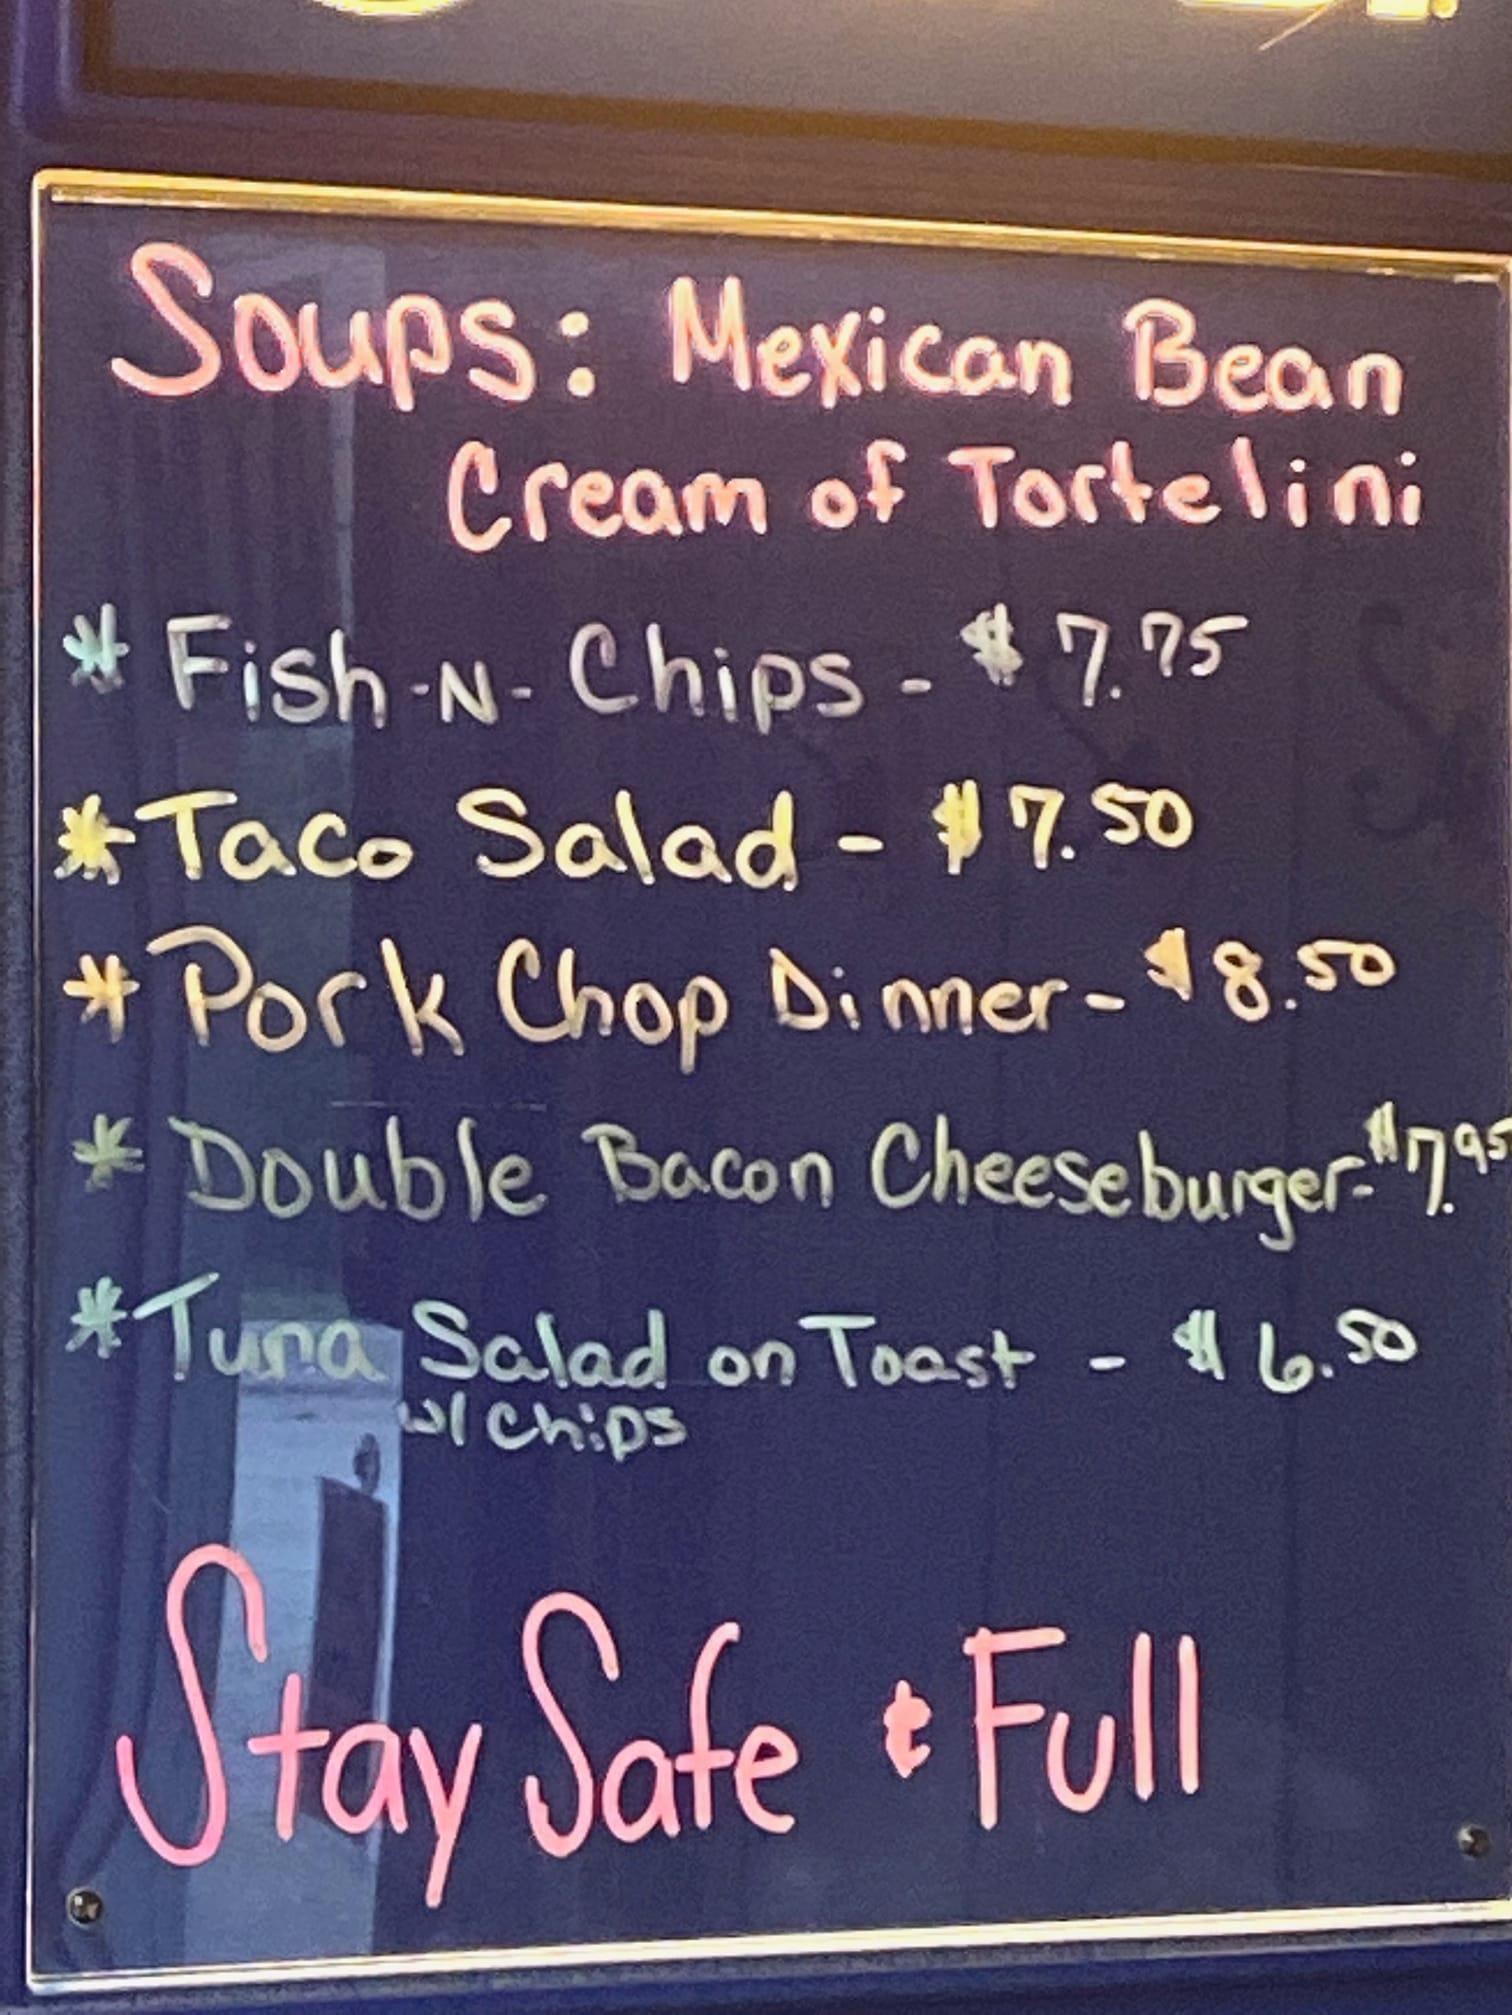 Soups: Mexican Bean
Cream of Tortelini
* Fish-N- Chips - $7.75
* Taco Salad - $7.50
* Pork Chop Dinner - $8.50
* Double Bacon Cheeseburger - $7.95
* Tuna Salad on Toast - $6.50
w/ chips
Stay Safe & Full